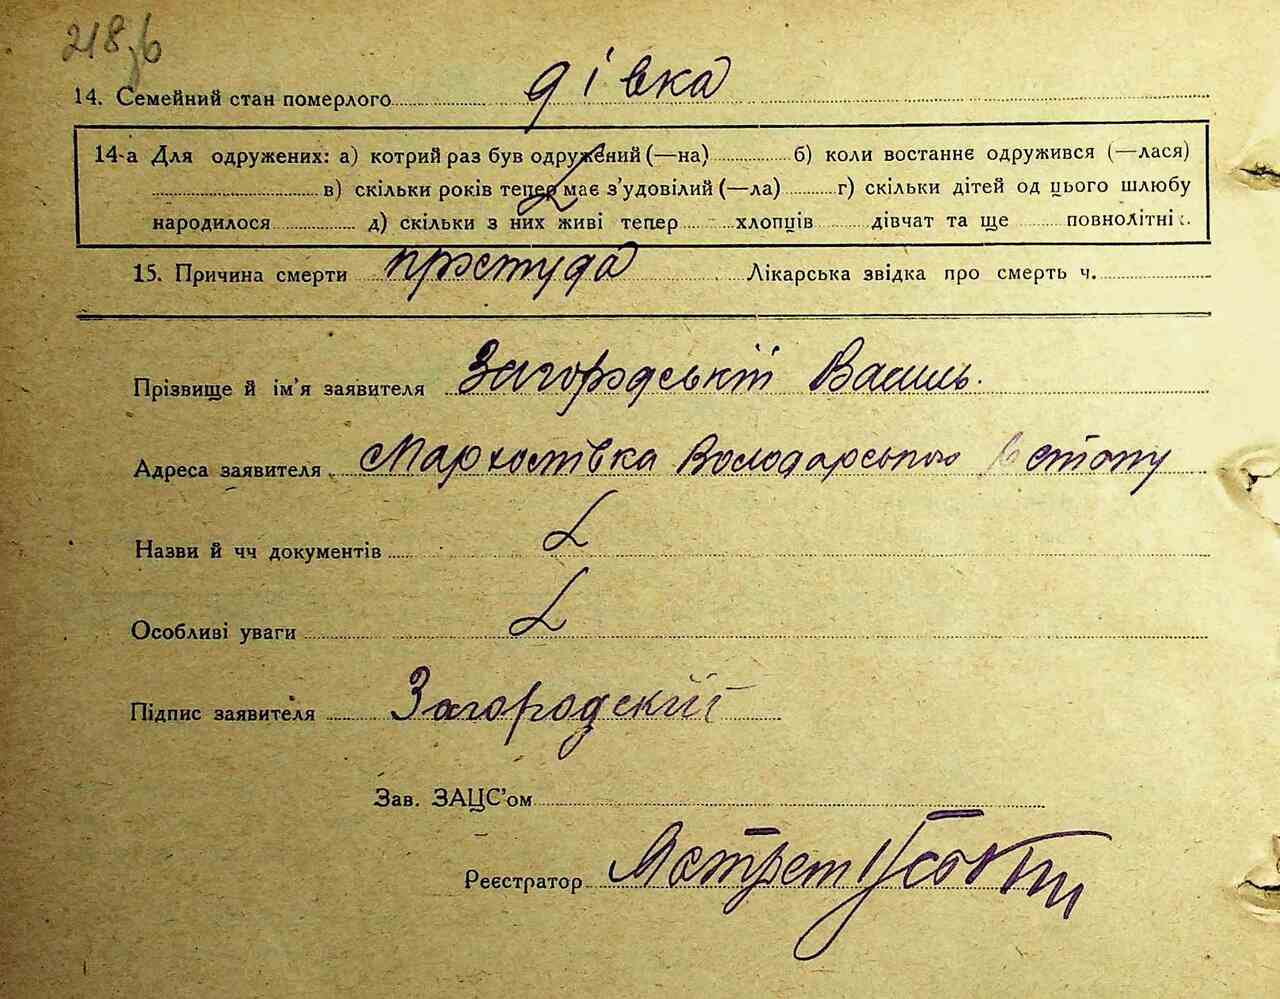 218зв
14. Семейний стан померлого дівка
14-а Для одружених: а) котрий раз був одружений (—на) б) коли востаннє одружився (—лася)
в) скільки років тепер має з'удовілий (—ла) г) скільки дітей од цього шлюбу
народилося д) скільки з них живі тепер хлопців дівчат та ще повнолітніх.
15. Причина смерти простуда Лікарська звідка про смерть ч.
Прізвище й ім'я заявителя Загородський Василь.
Адреса заявителя Мархолівка Володарського
Назви й чч документів
Особливі уваги
Підпис заявителя Загородский
Зав. ЗАЦС'ом
Реєстратор